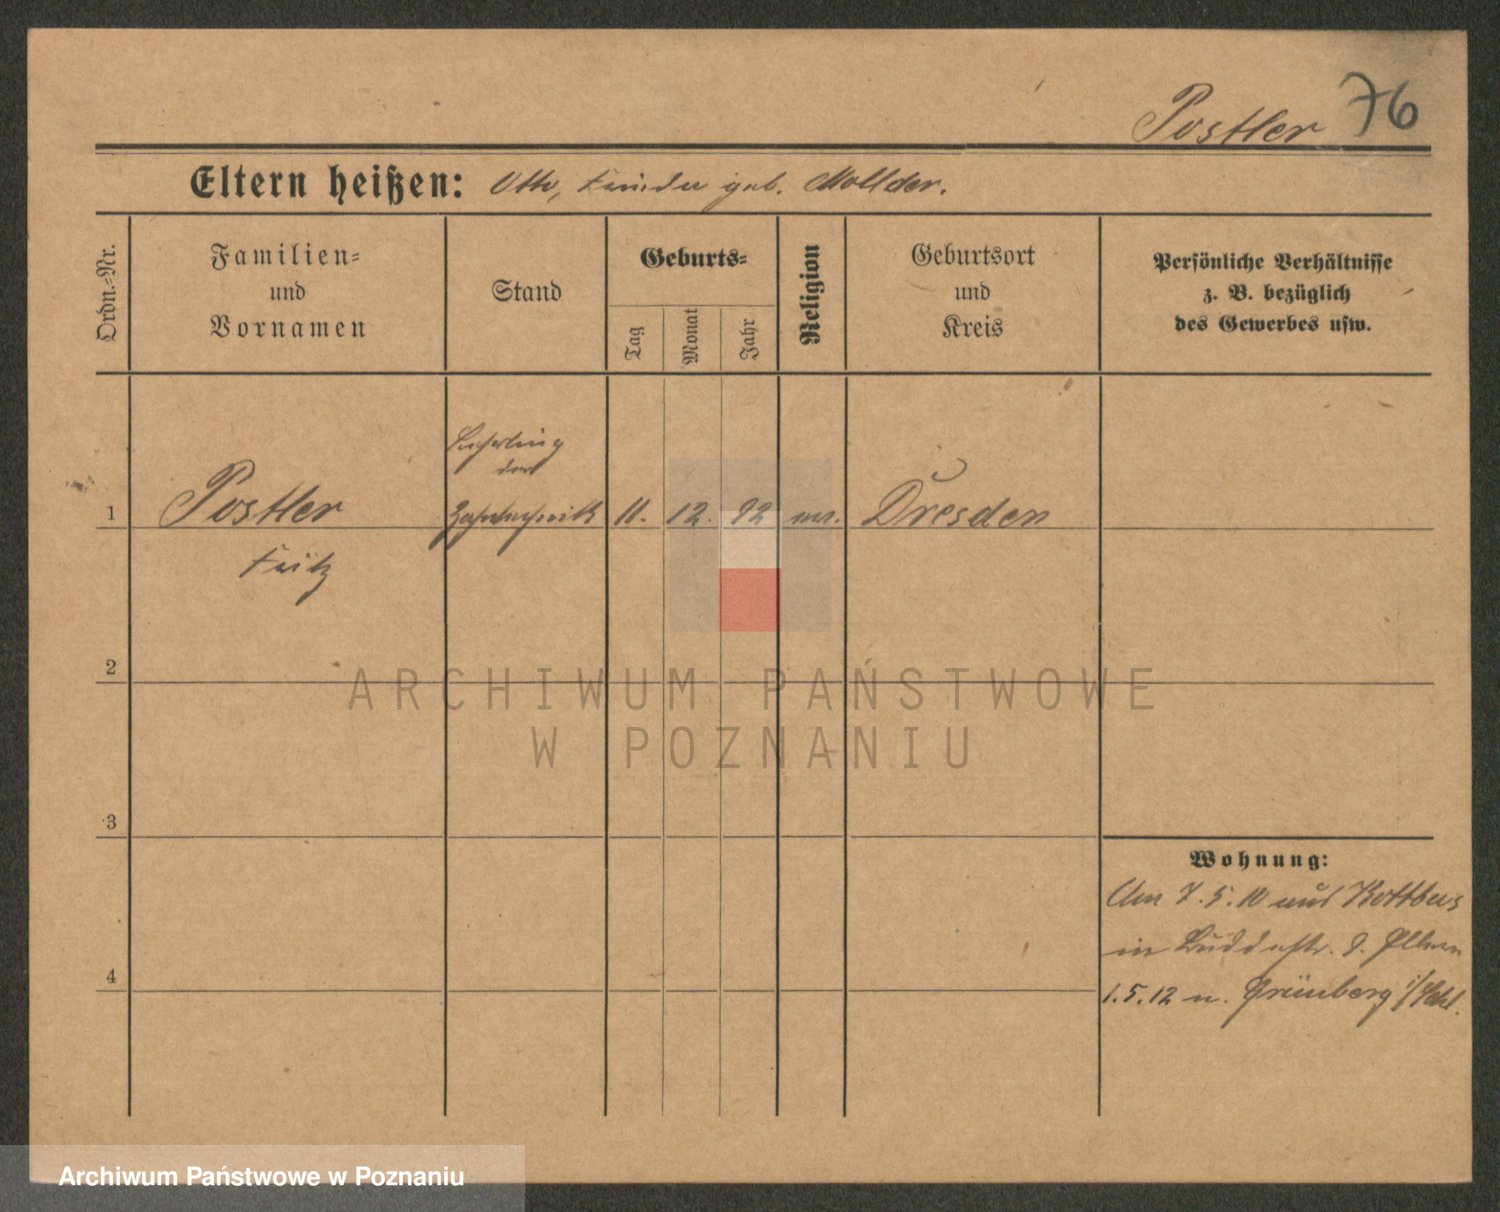 Postler 76
Eltern heißen: Otto, geb.
Ordn.-Nr.
Familien-
und
Vornamen
Stand
Geburts-
Tag
Monat
Jahr
Religion
Geburtsort
und
Kreis
Persönliche Verhältnisse
z. B. bezüglich
des Gewerbes usw.
Lehrling
der
1 Postler Zahntechnik 11. 12. 92 Dresden
Fritz
2
ARCHIWUM PAŃSTWOWE
W POZNANIU
3
Wohnung:
Am 7.5.10 aus Kottbus
in Buddestr. 9. Eltern
4
1.5.12 n. Grünberg i/Schl.
Archiwum Państwowe w Poznaniu